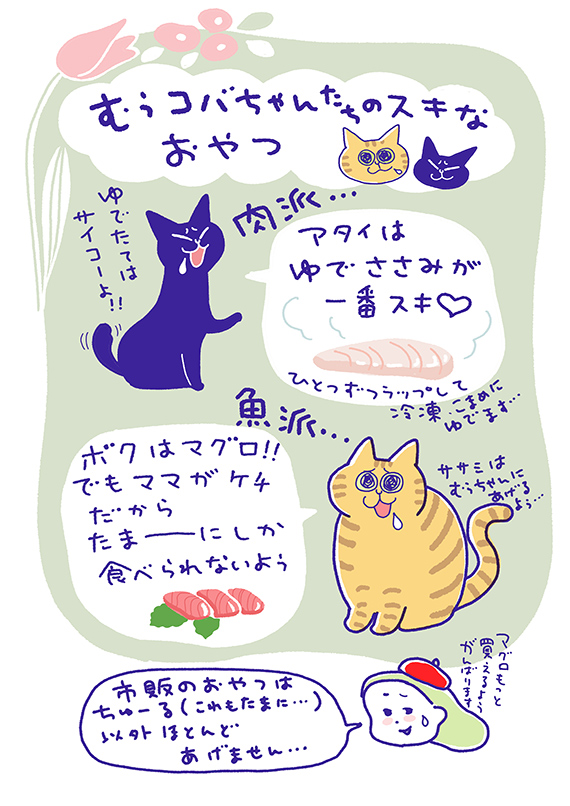 むぅコバちゃんたちのスキな
おやつ
肉派…
ゆでたては
サイコーよ!!
アタイは
ゆでささみが
一番スキ♡
ひとつずつラップして
冷凍、こまめに
ゆでます…
魚派…
ボクはマグロ!!
でもママがケチ
だから
たまーーにしか
食べられないよぅ
ササミは
むぅちゃんに
あげる
よぅ…
マグロもっと
買えるよう
がんばります
市販のおやつは
ちゅーる(これもたまに…)
以外ほとんど
あげません…